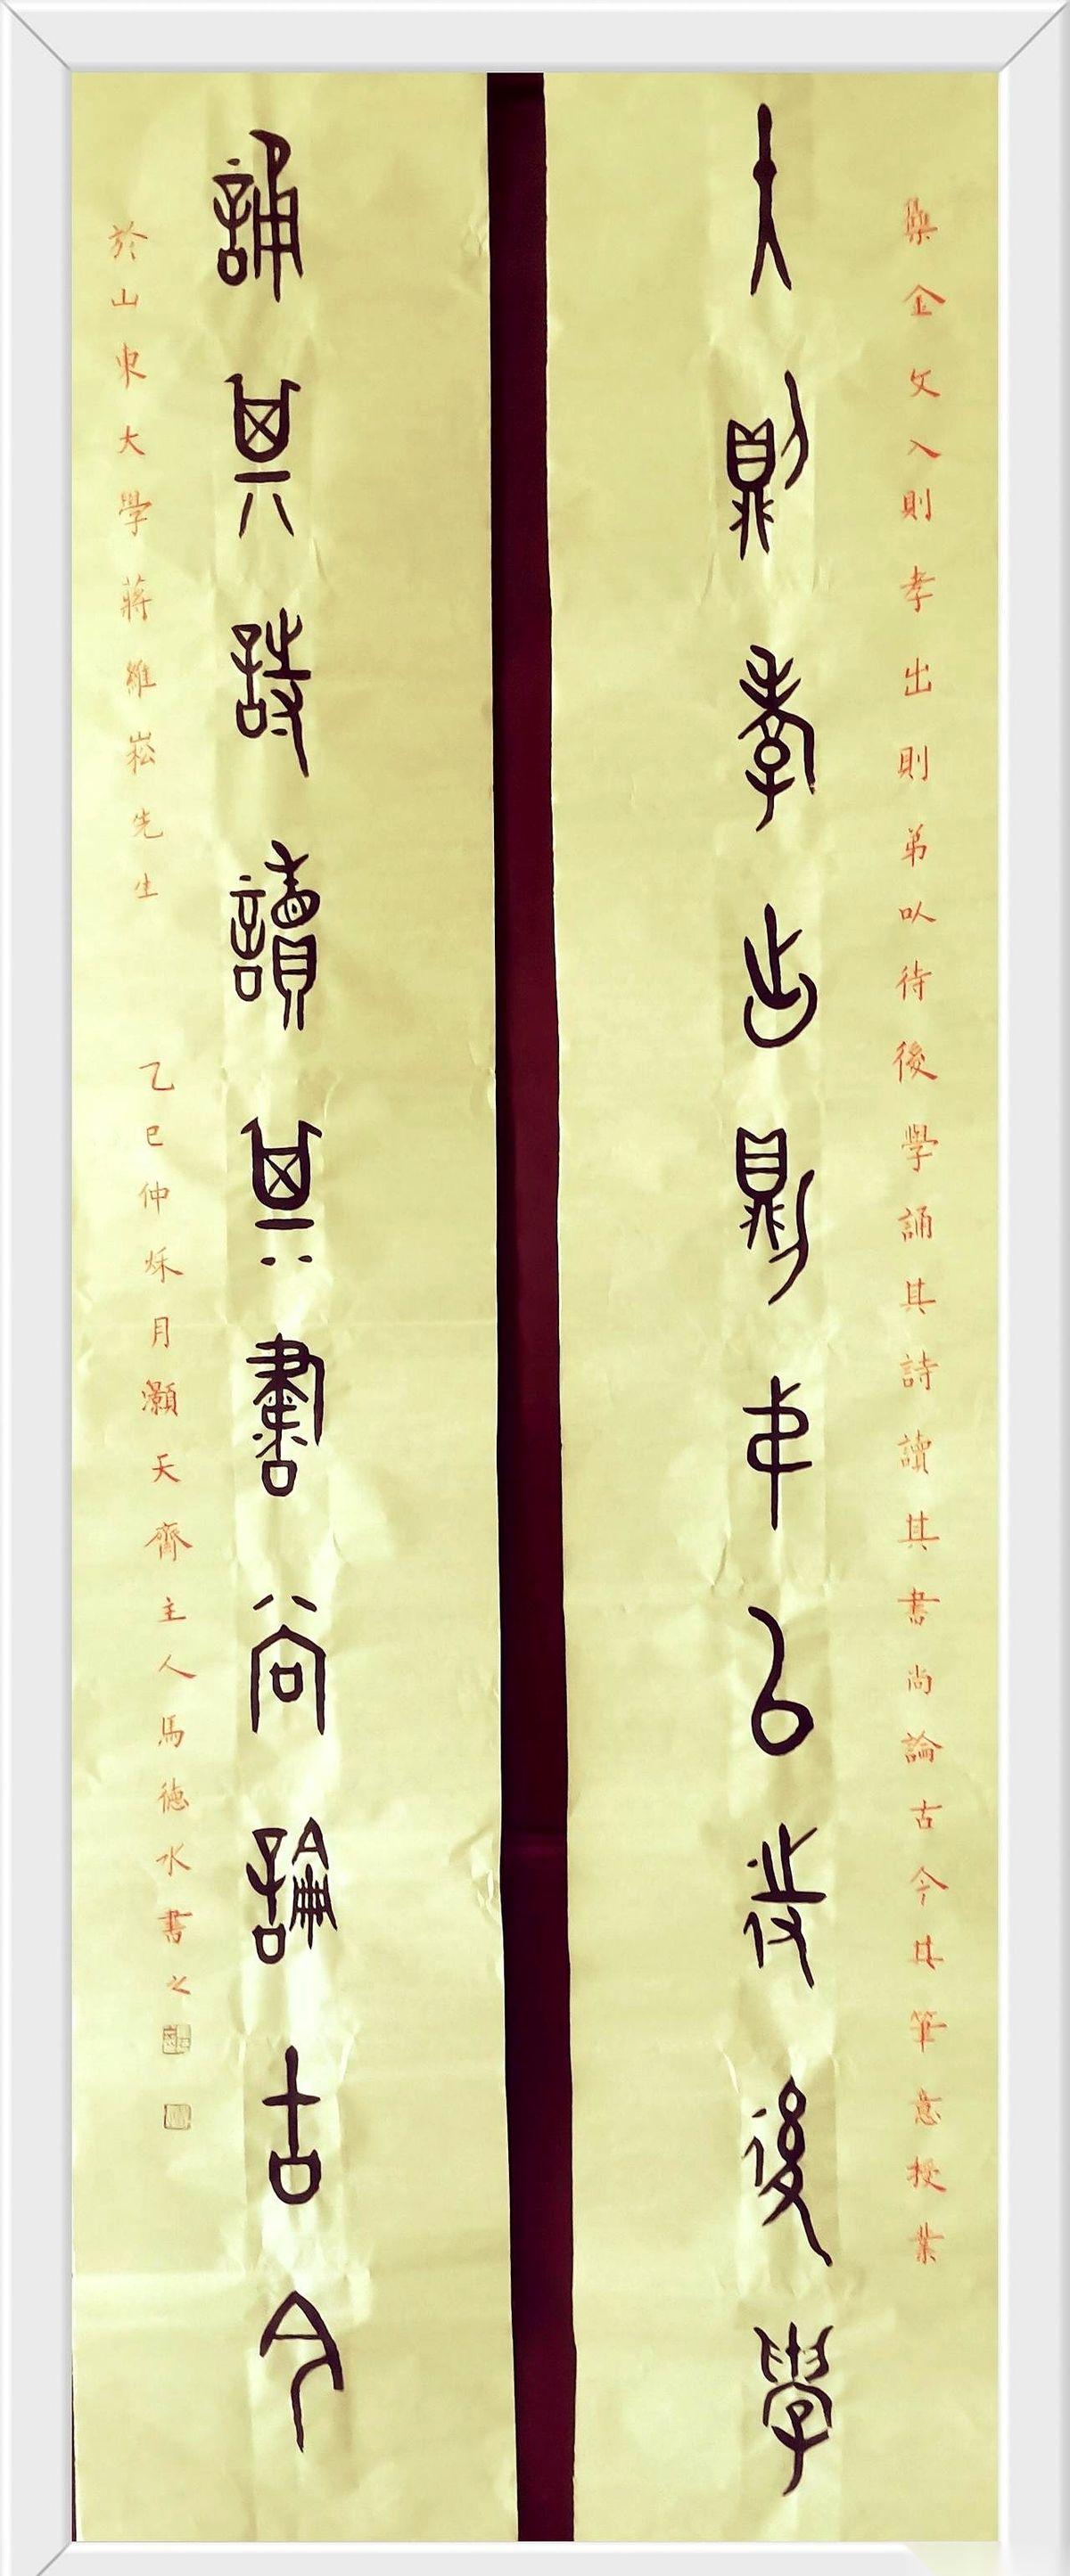 集金文入則孝出則弟㕥待後學誦其詩讀其書尚論古今其筆意授業
入則孝出則弟㠯待後學
誦其詩讀其書尚論古今
於山東大學蔣維崧先生 乙巳仲秌月灝天齊主人馬德水書之